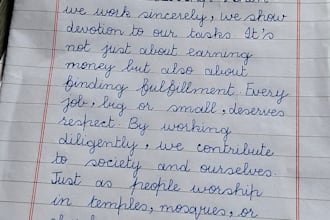 we work sincerely, we show
devotion to our tasks. It's
not just about earning
money but also about
finding fulfillment. Every
job, big or small, deserves
respect. By working
diligently, we contribute
to society and ourselves.
Just as people worship
in temples, mosques, or